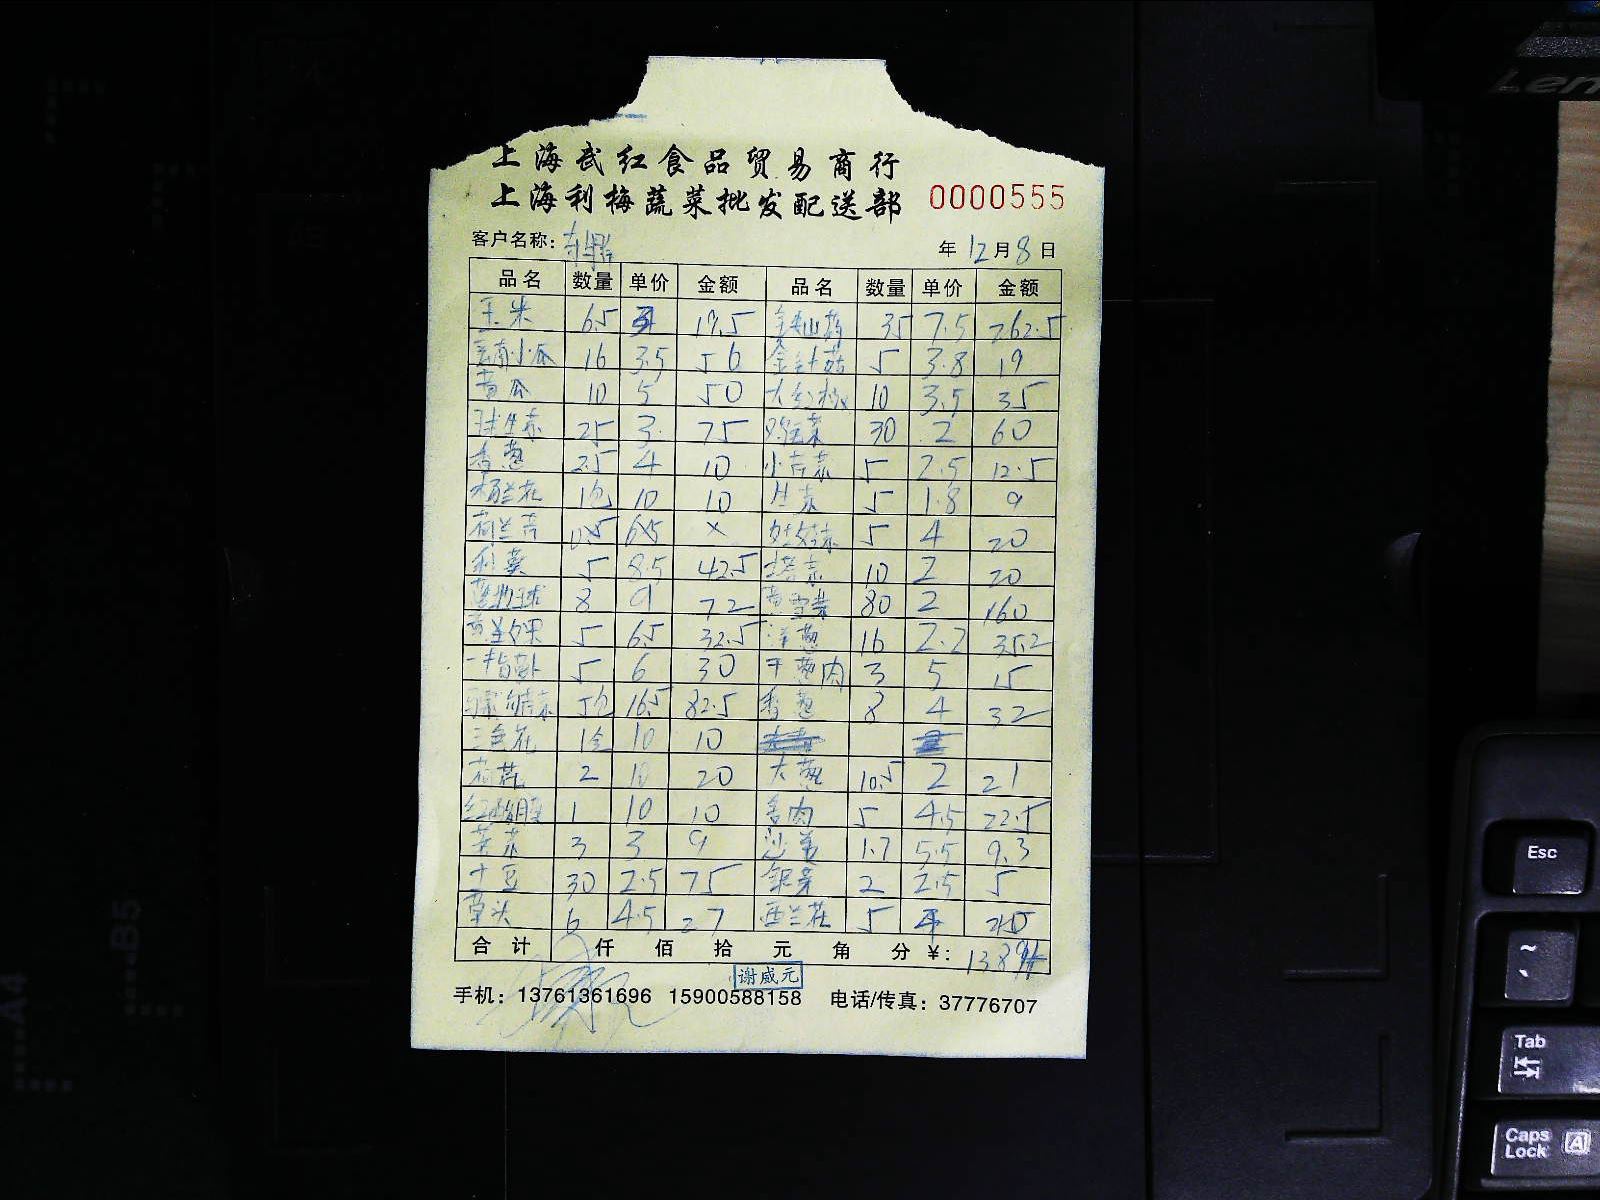 上海武红食品贸易商行
上海利梅蔬菜批发配送部 0000555
客户名称: 年 12 月 8 日
品名 数量 单价 金额 品名 数量 单价 金额
玉米 6.5 3 19.5 铁山药 35 7.5 262.5
云南小瓜 16 3.5 56 金针菇 5 3.8 19
黄瓜 10 5 50 大红椒 10 3.5 35
球生菜 25 3 75 鸡毛菜 30 2 60
香葱 2.5 4 10 小青菜 5 2.5 12.5
杨兰花 1包 10 10 生菜 5 1.8 9
荷兰芹 0.5 6.5 × 娃娃菜 5 4 20
5 8.5 42.5 塔菜 10 2 20
8 9 72 80 2 160
5 6.5 32.5 洋葱 16 2.2 35.2
一指 5 6 30 干葱肉 3 5 15
5包 16.5 82.5 香葱 8 4 32
三色花 1合 10 10
2 10 20 大葱 10.5 2 21
1 10 10 肉 5 4.5 22.5
3 3 9 沙姜 1.7 5.5 9.3
土豆 30 2.5 75 银芽 2 2.5 5
草头 6 4.5 27 西兰花 5
合计 仟 佰 拾 元 角 分 ¥:
谢威元
手机: 13761361696 15900588158 电话/传真: 37776707
Len
Esc
~
Tab
Caps Lock A
B5
A4